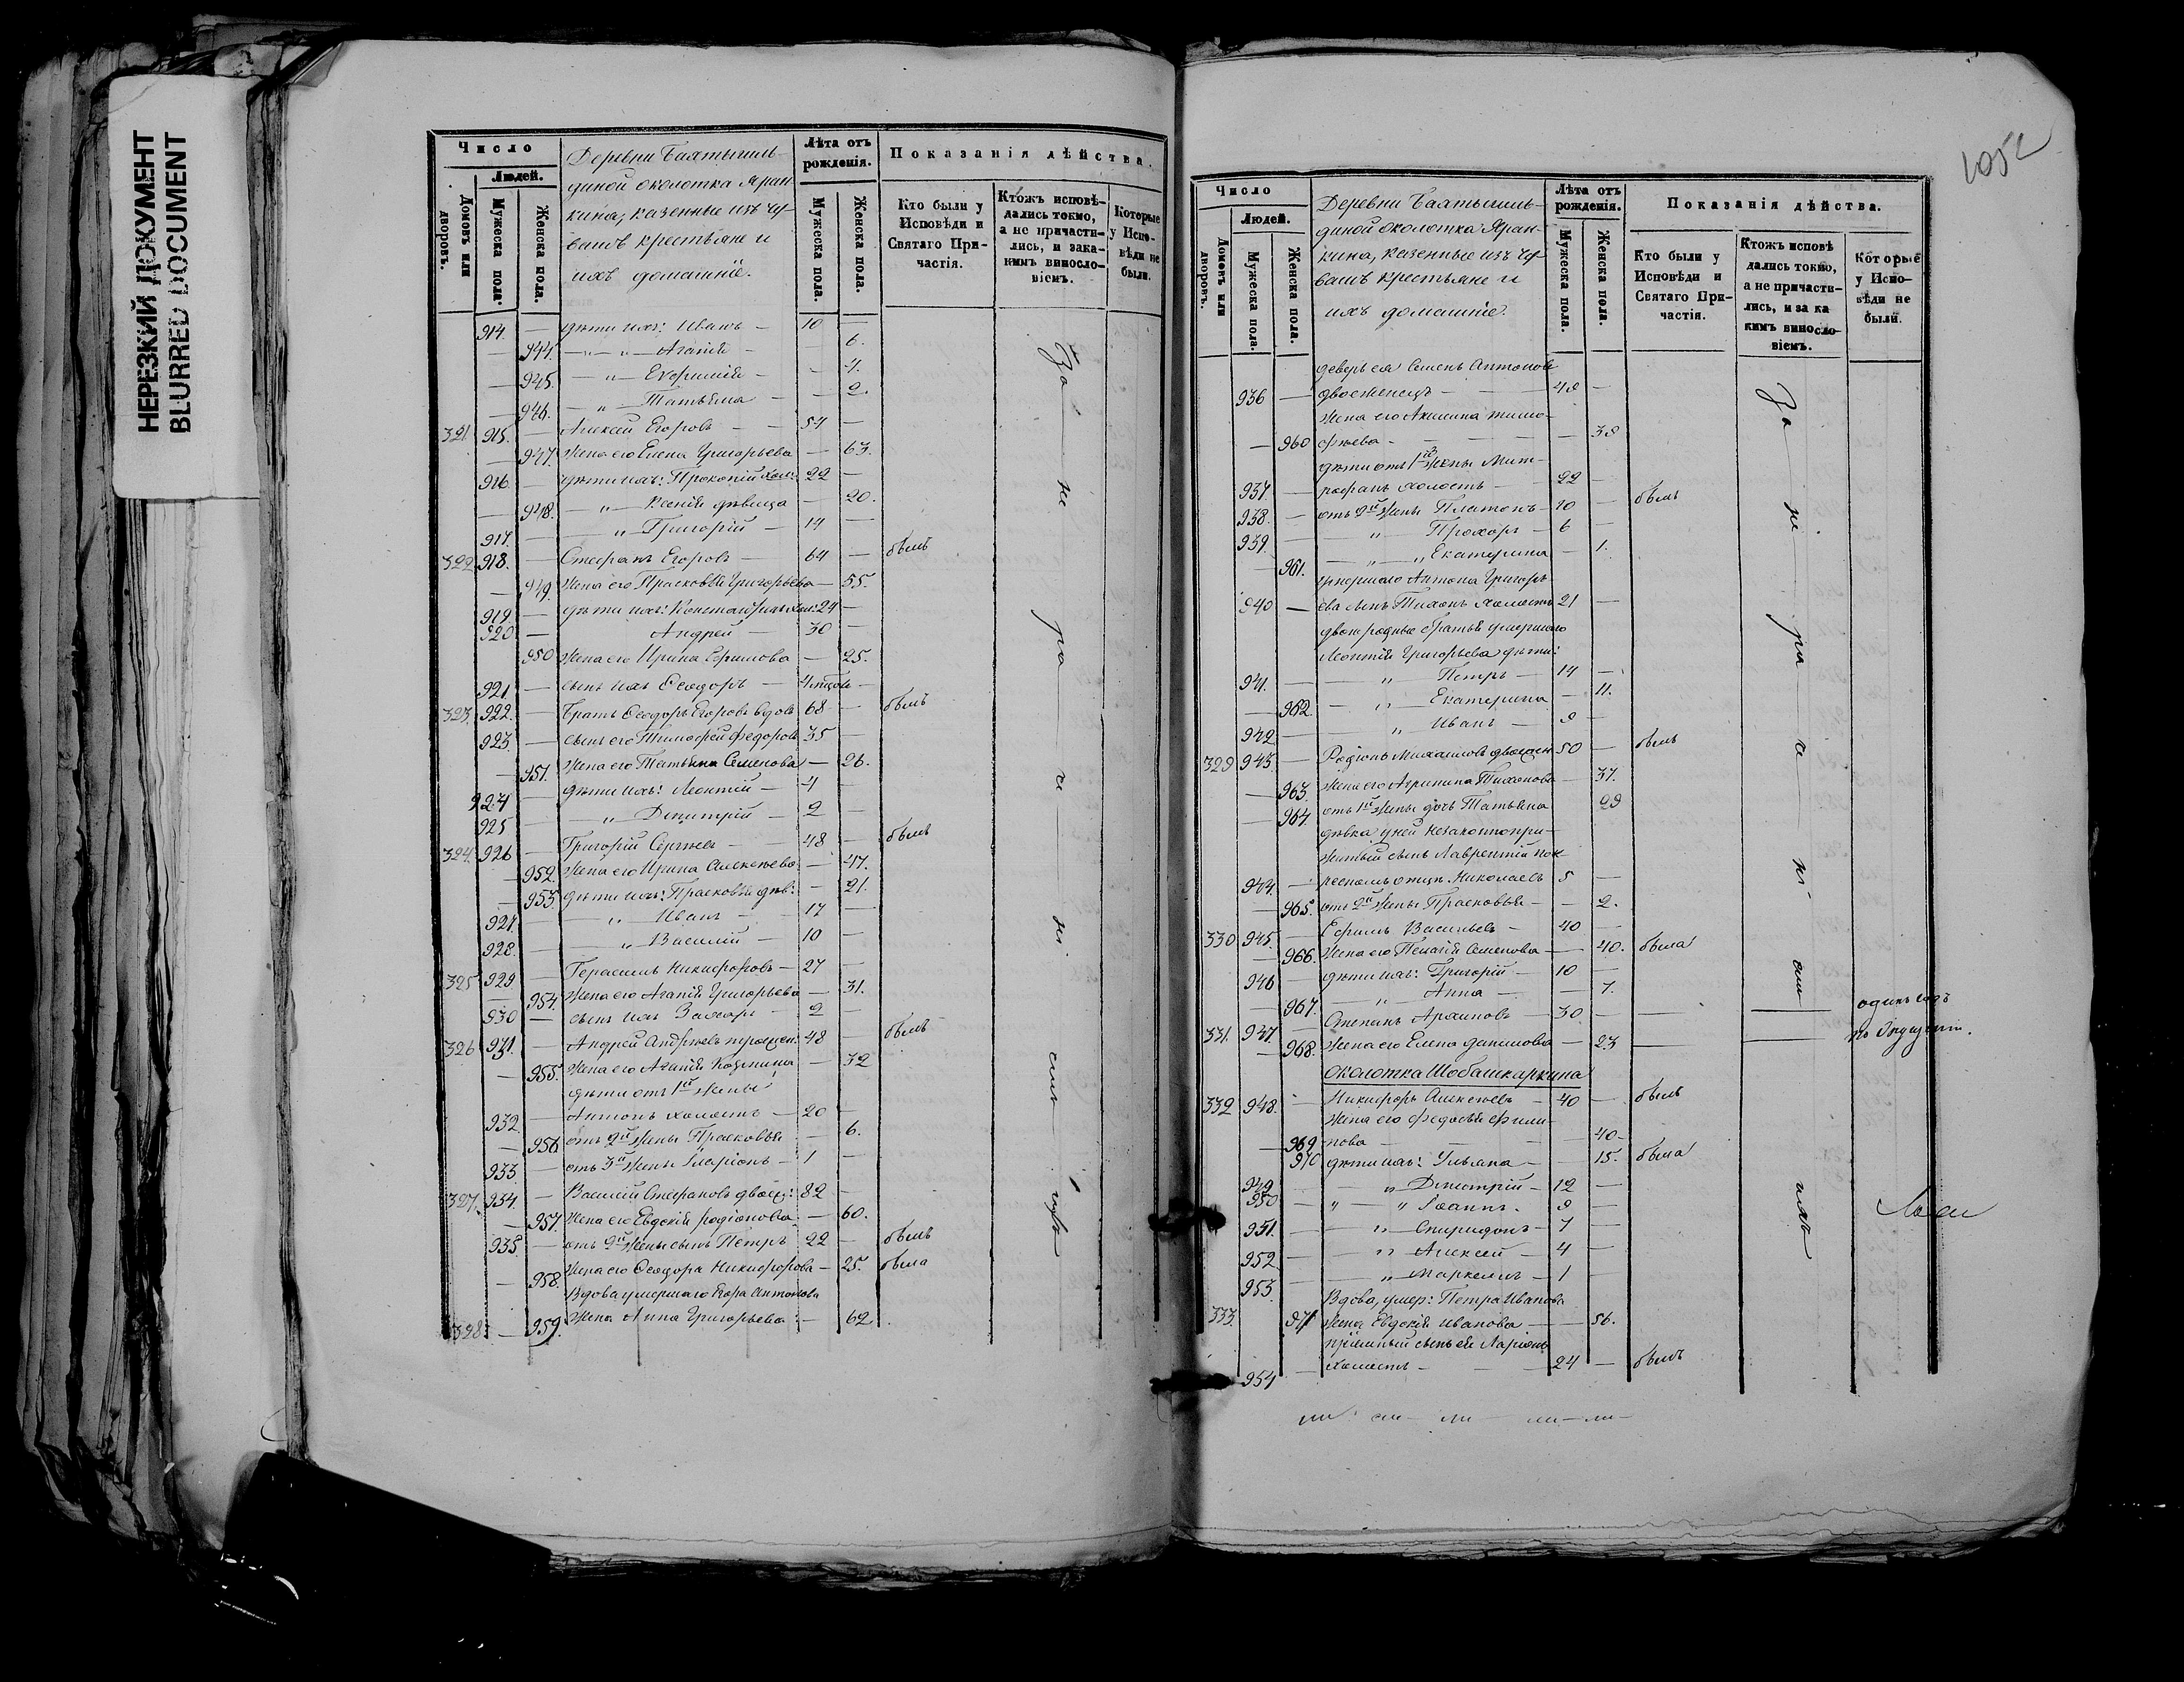 НЕРЕЗКИЙ ДОКУМЕНТ
BLURRED DOCUMENT
Число
Людей.
Домовъ или дворовъ.
Мужеска пола.
Женска пола.
Деревни
диной околотка Яран-
кина, казенные изъ чу-
вашъ крестьяне и
ихъ домашніе.
Лѣта отъ рожденія.
Мужеска пола.
Женска пола.
Показанія дѣйства.
Кто были у Исповѣди и Святаго Причастія.
Ктожъ исповѣдались токмо, а не причастились, и закакимъ винословіемъ.
Которые у Исповѣди не были.
914. — дѣти ихъ: Иванъ — 10 —
— 944. — „ — Агапія — — 6.
— 945. — „ — — 4.
— 946. — „ — Татьяна — — 2.
321 915. — Алексей Егоровъ — 54 —
— 947. Жена его Елена Григорьева — 63.
916 — дѣти ихъ: Прокопій хол: 22 —
— 948. — „ — Ксенія дѣвица — 20.
917. — „ Григорій — 14 —
322 918. — Стефанъ Егоровъ — 64 — былъ
— 949. Жена его Прасковья Григорьева — 55.
919 — дѣти ихъ: хол: 24 —
920 — Андрей — 30 —
950 Жена его Ирина Ефимова — 25.
921. — сынъ ихъ Ѳеодоръ —
323. 922. — Братъ Ѳеодоръ Егоровъ вдовъ 68 — былъ
923. — сынъ его Тимофей Федоровъ 35 —
— 951. Жена его Татьяна Семенова — 26.
924 — дѣти ихъ: Леонтій — 4 —
925 — „ — Димитрій — 2 —
324. 926 — Григорій Сергѣевъ — 48 — былъ
— 952. Жена его Ирина Алексѣева — 47.
— 953. дѣти ихъ: Прасковья дѣв: — 21.
927. — „ — Иванъ — 17 —
928. — „ Василій — 10 —
325 929 — Герасимъ Никифоровъ — 27 —
— 954. Жена его Агапія Григорьева — 31.
930 — сынъ ихъ Захаръ — 2 —
326 931. — Андрей Андрѣевъ троежен: 48 — былъ
— 955. Жена его Агапія Козмина — 32
дѣти отъ 1й жены
932. — Антонъ холостъ — 20 —
— 956 отъ 2й жены Прасковья — 6.
933 — отъ 3й жены Іларіонъ — 1 —
327. 934. — Василій Стефановъ двоеж: 82 —
— 957. Жена его Евдокія Родіонова — 60.
935. — отъ 2й жены сынъ Петръ 22 — былъ
— 958. Жена его Ѳеодора Никифорова — 25. была
Вдова умершаго Егора Антонова
328. — 959. Жена Анна Григорьева — 62.
За не ра че ні емъ ихъ
1052
Число
Людей.
Домовъ или дворовъ.
Мужеска пола.
Женска пола.
Деревни
диной околотка Яран-
кина, казенные изъ чу-
вашъ крестьяне и
ихъ домашніе.
Лѣта отъ рожденія.
Мужеска пола.
Женска пола.
Показанія дѣйства.
Кто были у Исповѣди и Святаго Причастія.
Ктожъ исповѣдались токмо, а не причастились, и за какимъ винословіемъ.
Которые у Исповѣди не были.
деверь ея Семенъ Антоновъ
936 — двоеженецъ — 48 —
Жена его Акилина Тимо-
— 960 фѣева — — 38
дѣти отъ 1й жены Мит-
937. — рофанъ холостъ — 22 —
938. — отъ 2й жены Платонъ — 10 — былъ
939. — „ — Прохоръ — 6 —
— 961. — „ Екатерина — 1.
умершаго Антона Григорь-
940 — ева сынъ Тихонъ холостъ 21 —
двоюродные братья умершаго
Леонтія Григорьева дѣти:
941. — „ — Петръ — 14 —
— 962. — „ — Екатерина — 11.
942 — „ Иванъ — 9 —
329 943. — Родіонъ Михаиловъ двоежен 50 — былъ
— 963. Жена его Агрипина Тихонова — 37.
— 964. отъ 1й жены дочь Татьяна 29
дѣвка у ней незаконнопри-
житый сынъ Лаврентій по к-
944. — ресномъ отцѣ Николаевъ 5 —
— 965. отъ 2й жены Прасковья — — 2.
330 945. — Ефимъ Васильевъ — 40 —
— 966. Жена его Пелагія Семенова — 40. была
946 — дѣти ихъ: Григорій — 10 —
— 967. — „ Анна — — 7.
331. 947. — Степанъ Архиповъ — 30 —
— 968. Жена его Елена Данилова — 23
одинъ годъ
Околотка Шобашкаркина
332 948. — Никифоръ Алексѣевъ — 40 — былъ
Жена его Федосья Фили-
— 969 пова — — 40 —
970 дѣти ихъ: Ульяна — — 15. была
949. — „ Дмитрій — 12 —
950 — „ — „ Іоаннъ. — 9 —
951. — „ — Спиридонъ — 7 —
952. — „ — Алексей — 4 —
953. — „ — Маркелъ — 1 —
Вдова, умер: Петра Иванова
333. 971 Жена Евдокія Иванова — — 56.
пріемный сынъ ей Ларіонъ
954 — холостъ — — 24 — былъ
За не ра че ні емъ ихъ